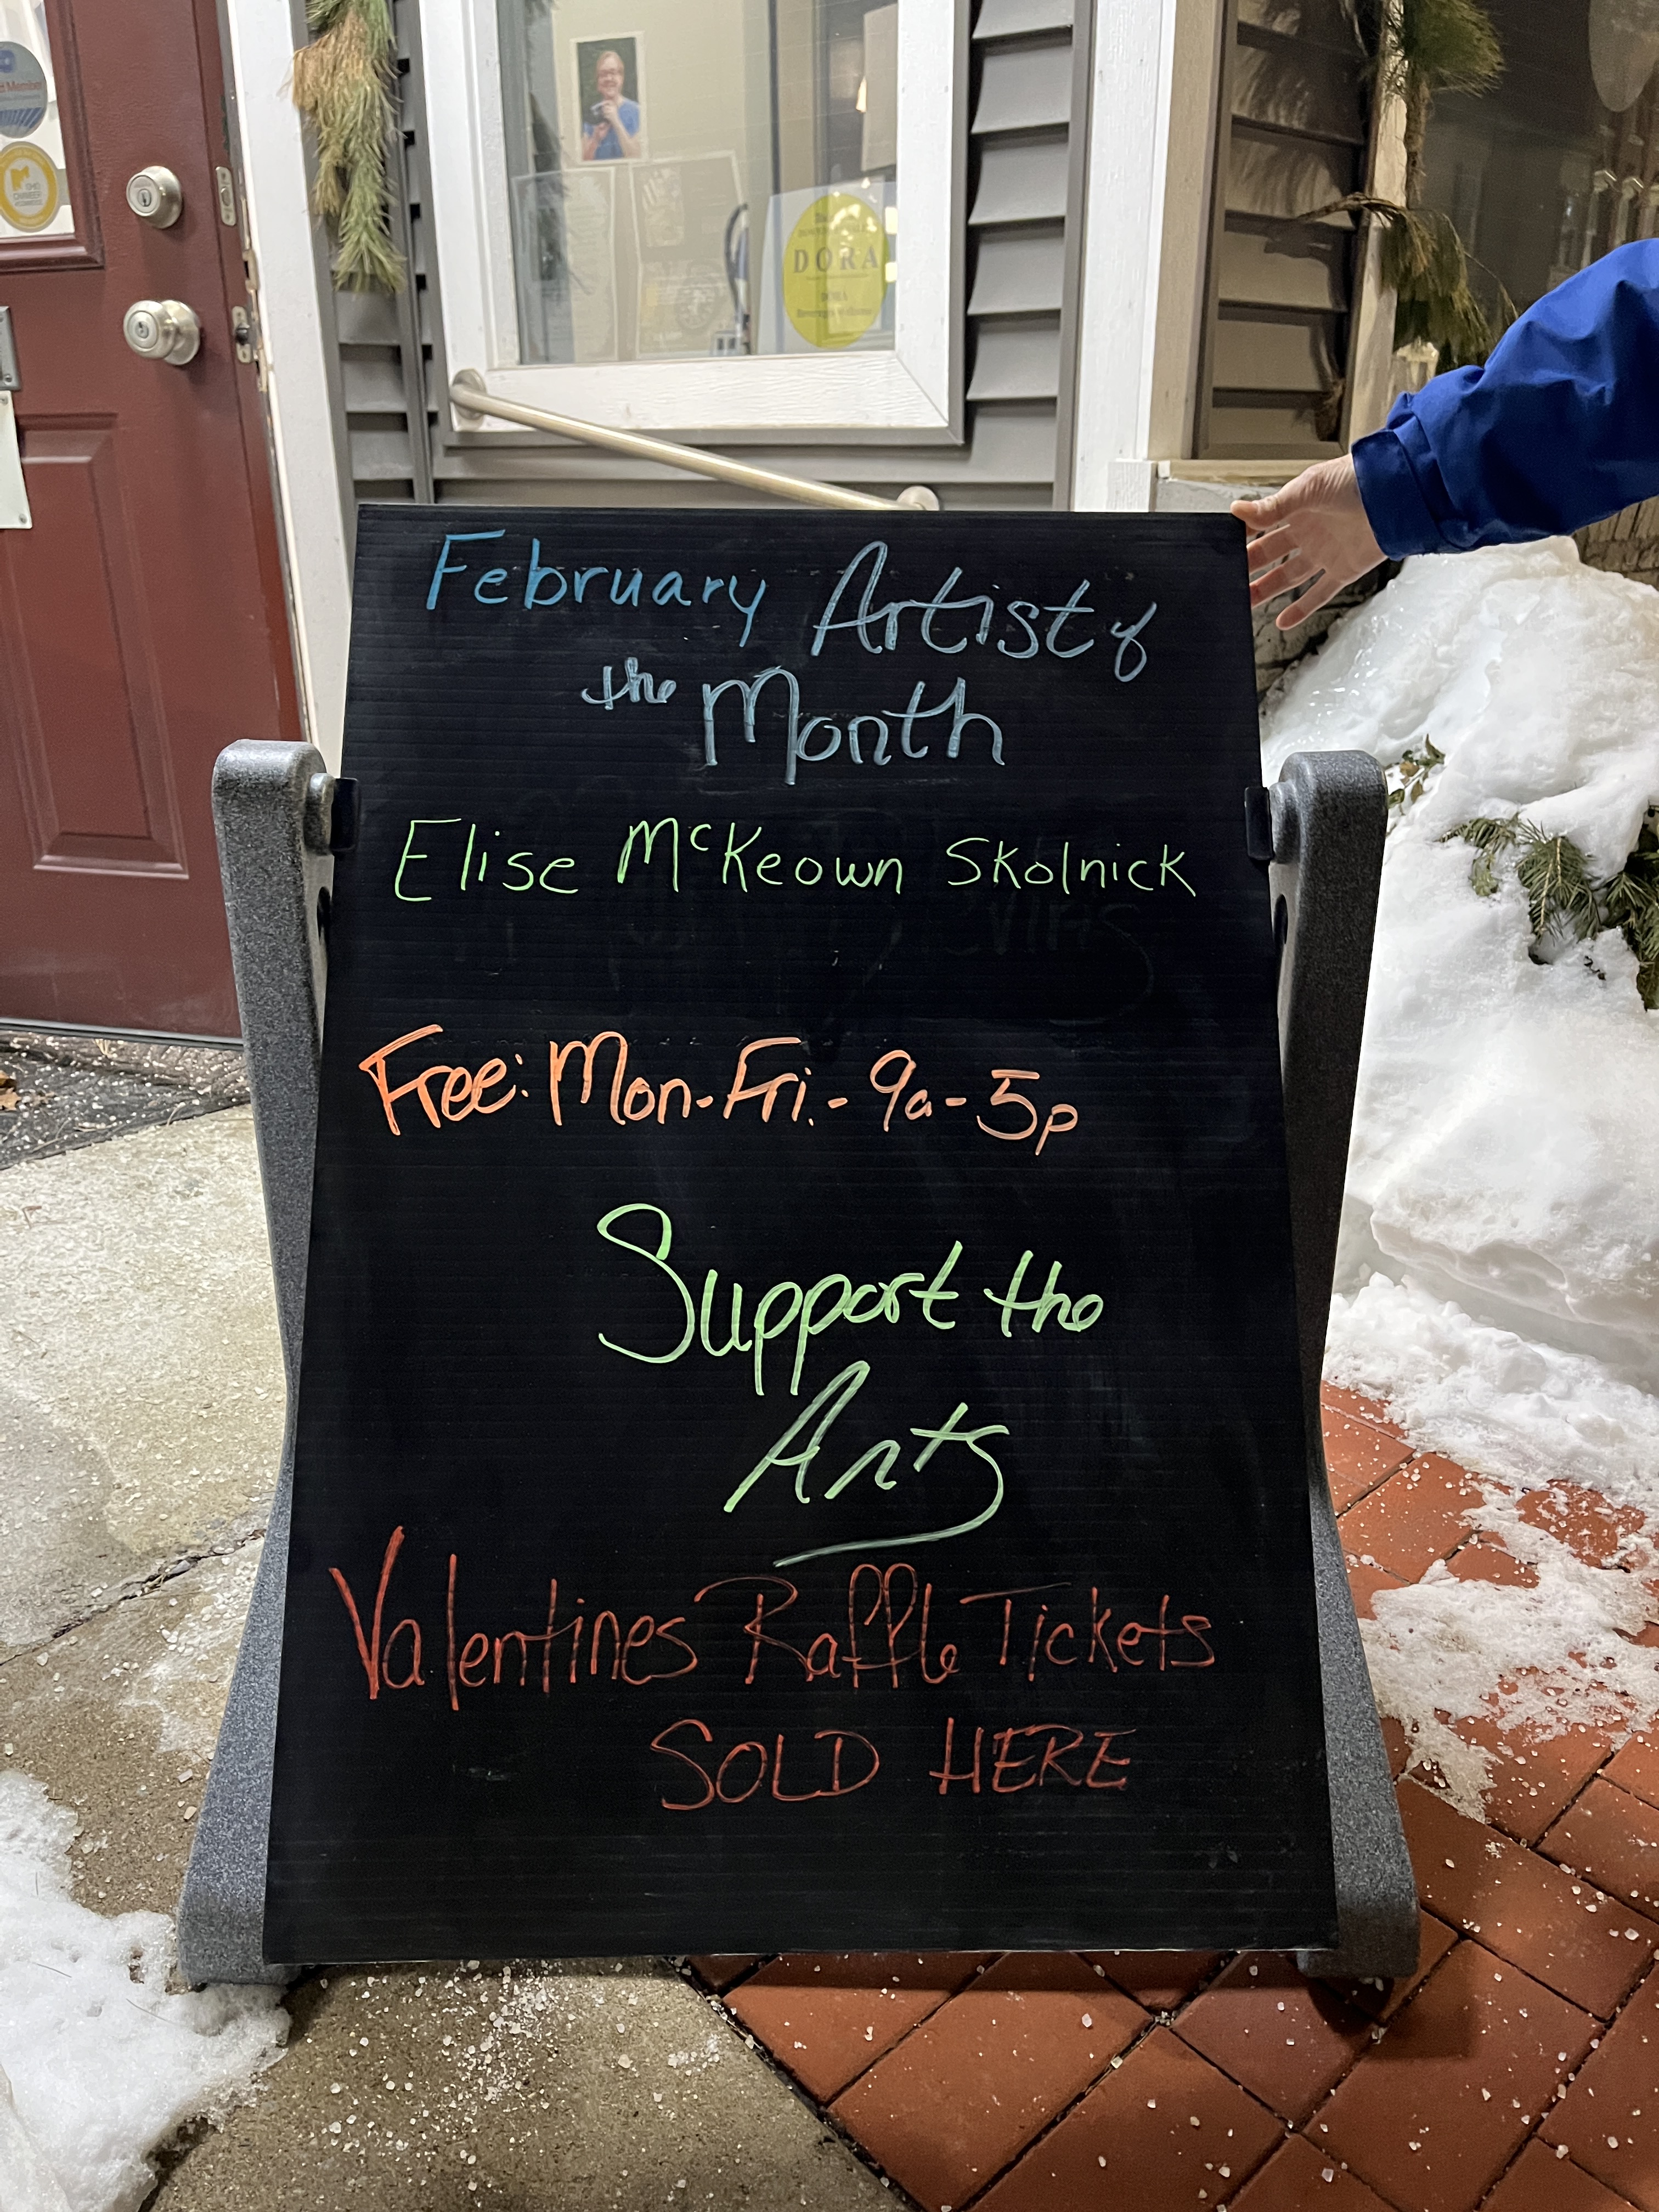 February Artist of
the Month
Elise McKeown Skolnick
Free: Mon-Fri.- 9a-5p
Support the
Arts
Valentines Raffle Tickets
SOLD HERE
DORA
DORA
Member
OHIO
CHAMBER